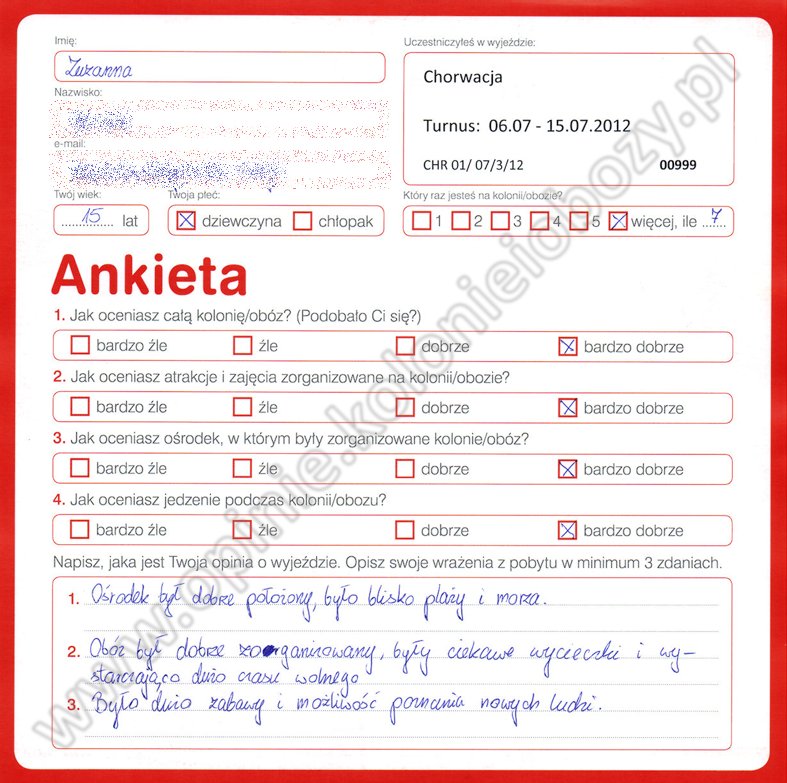 Imię:
Zuzanna
Nazwisko:
e-mail:
Twój wiek:
15 lat
Twoja płeć:
dziewczyna chłopak
Uczestniczyłeś w wyjeździe:
Chorwacja
Turnus: 06.07 - 15.07.2012
CHR 01/ 07/3/12 00999
Który raz jesteś na kolonii/obozie?
1 2 3 4 5 więcej, ile 7
Ankieta
1. Jak oceniasz całą kolonię/obóz? (Podobało Ci się?)
bardzo źle źle dobrze bardzo dobrze
2. Jak oceniasz atrakcje i zajęcia zorganizowane na kolonii/obozie?
bardzo źle źle dobrze bardzo dobrze
3. Jak oceniasz ośrodek, w którym były zorganizowane kolonie/obóz?
bardzo źle źle dobrze bardzo dobrze
4. Jak oceniasz jedzenie podczas kolonii/obozu?
bardzo źle źle dobrze bardzo dobrze
Napisz, jaka jest Twoja opinia o wyjeździe. Opisz swoje wrażenia z pobytu w minimum 3 zdaniach.
1. Ośrodek był dobrze położony, było blisko plaży i morza.
2. Obóz był dobrze zorganizowany, były ciekawe wycieczki i wy-
starczająco dużo czasu wolnego
3. Było dużo zabawy i możliwość poznania nowych ludzi.
www.opinie.kolonieiobozy.pl